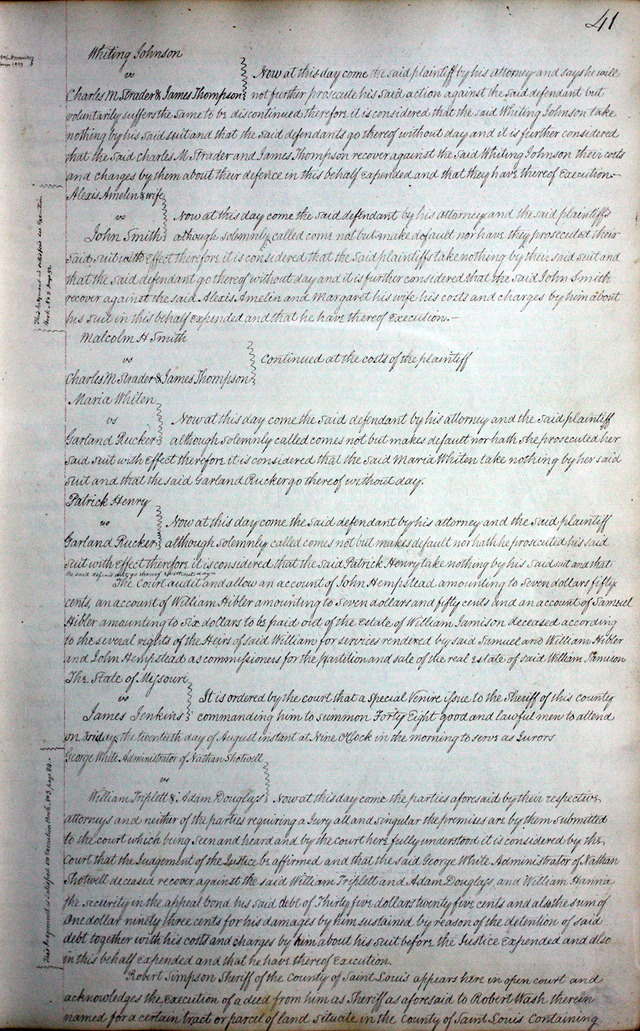 41
Whiting Johnson
vs
Now at this day come the said plaintiff by his attorney and says he will
Charles M Strader & James Thompson
not further prosecute his said action against the said defendant but
voluntarily suffers the same to be discontinued therefore it is considered that the said Whiting Johnson take
nothing by his said suit and that the said defendants go thereof without day and it is further considered
that the said Charles M Strader and James Thompson recover against the said Whiting Johnson their costs
and charges by them about their defence in this behalf expended and that they have thereof Execution
Alexis Amelin & wife
vs
Now at this day come the said defendant by his attorney and the said plaintiffs
John Smith
although solemnly called come not but make default nor have they prosecuted their
said suit with effect therefore it is considered that the said plaintiffs take nothing by their said suit and
that the said defendant go thereof without day and it is further considered that the said John Smith
recover against the said Alexis Amelin and Margaret his wife his costs and charges by him about
his suit in this behalf expended and that he have thereof Execution.-
Malcolm H Smith
vs
Continued at the costs of the plaintiff
Charles M Strader & James Thompson
Maria Whiten
vs
Now at this day come the said defendant by his attorney and the said plaintiff
Garland Rucker
although solemnly called comes not but makes default nor hath she prosecuted her
said suit with effect therefore it is considered that the said Maria Whiten take nothing by her said
suit and that the said Garland Rucker go thereof without day.
Patrick Henry
vs
Now at this day come the said defendant by his attorney and the said plaintiff
Garland Rucker
although solemnly called comes not but makes default nor hath he prosecuted his said
suit with Effect therefore it is considered that the said Patrick Henry take nothing by his said suit and that
the said defendant go thereof without day
The Court audit and allow an account of John Hempstead amounting to Seven dollars fifty
cents, an account of William Hibler amounting to Seven dollars and fifty cents and an account of Samuel
Hibler amounting to Six dollars to be paid out of the Estate of William Jamison deceased according
to the several rights of the Heirs of said William for services rendered by said Samuel and William Hibler
and John Hempstead as commissioners for the partition and sale of the real Estate of said William Jamison
The State of Missouri
vs
It is ordered by the court that a Special Venire issue to the Sheriff of this county
James Jenkins
commanding him to summon Forty Eight good and lawful men to attend
on Friday the twentieth day of August instant at Nine O'Clock in the morning to serve as Jurors
George White Administrator of Nathan Shotwell
vs
William Triplett & Adam Douglass
Now at this day come the parties aforesaid by their respective
attorneys and neither of the parties requiring a Jury all and singular the premises are by them submitted
to the court which being seen and heard and by the court here fully understood it is considered by the
Court that the Judgement of the Justice be affirmed and that the said George White Administrator of Nathan
Shotwell deceased recover against the said William Triplett and Adam Douglass, and William Hanna
the Security in the appeal bond his said debt of Thirty five dollars twenty five cents and also the sum of
One dollar ninety three cents for his damages by him sustained by reason of the detention of said
debt together with his costs and charges by him about his suit before the Justice Expended and also
in this behalf expended and that he have thereof Execution.
Robert Simpson Sheriff of the County of Saint Louis appears here in open court and
acknowledges the Execution of a deed from him as Sheriff as aforesaid to Robert Wash therein
named for a certain tract or parcel of land situate in the County of Saint Louis containing
This Judgment is satisfied see Execution
Book No 3 page 82.
This Judgment is satisfied see Execution Book No 3 page 82.